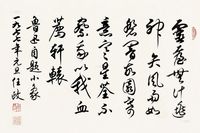 靈臺無計逃
神矢風雨如
磐闇故園寄
意寒星荃不
察我以我血
薦軒轅
魯迅自題小象
一九七七年元旦任政